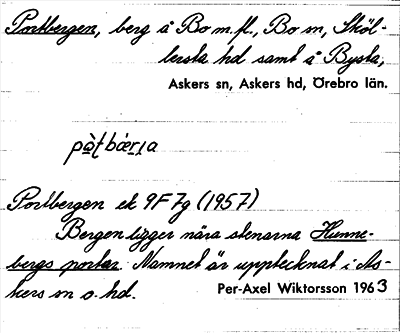 Portbergen, berg å Bo m.fl., Bo sn, Sköl-
lersta hd samt å Bysta,
Askers sn, Askers hd, Örebro län.
Portbergen ek 9F7g (1957)
Bergen ligger nära stenarna Hunne-
bergs portar. Namnet är upptecknat i As-
kers sn o. hd.
Per-Axel Wiktorsson 1963